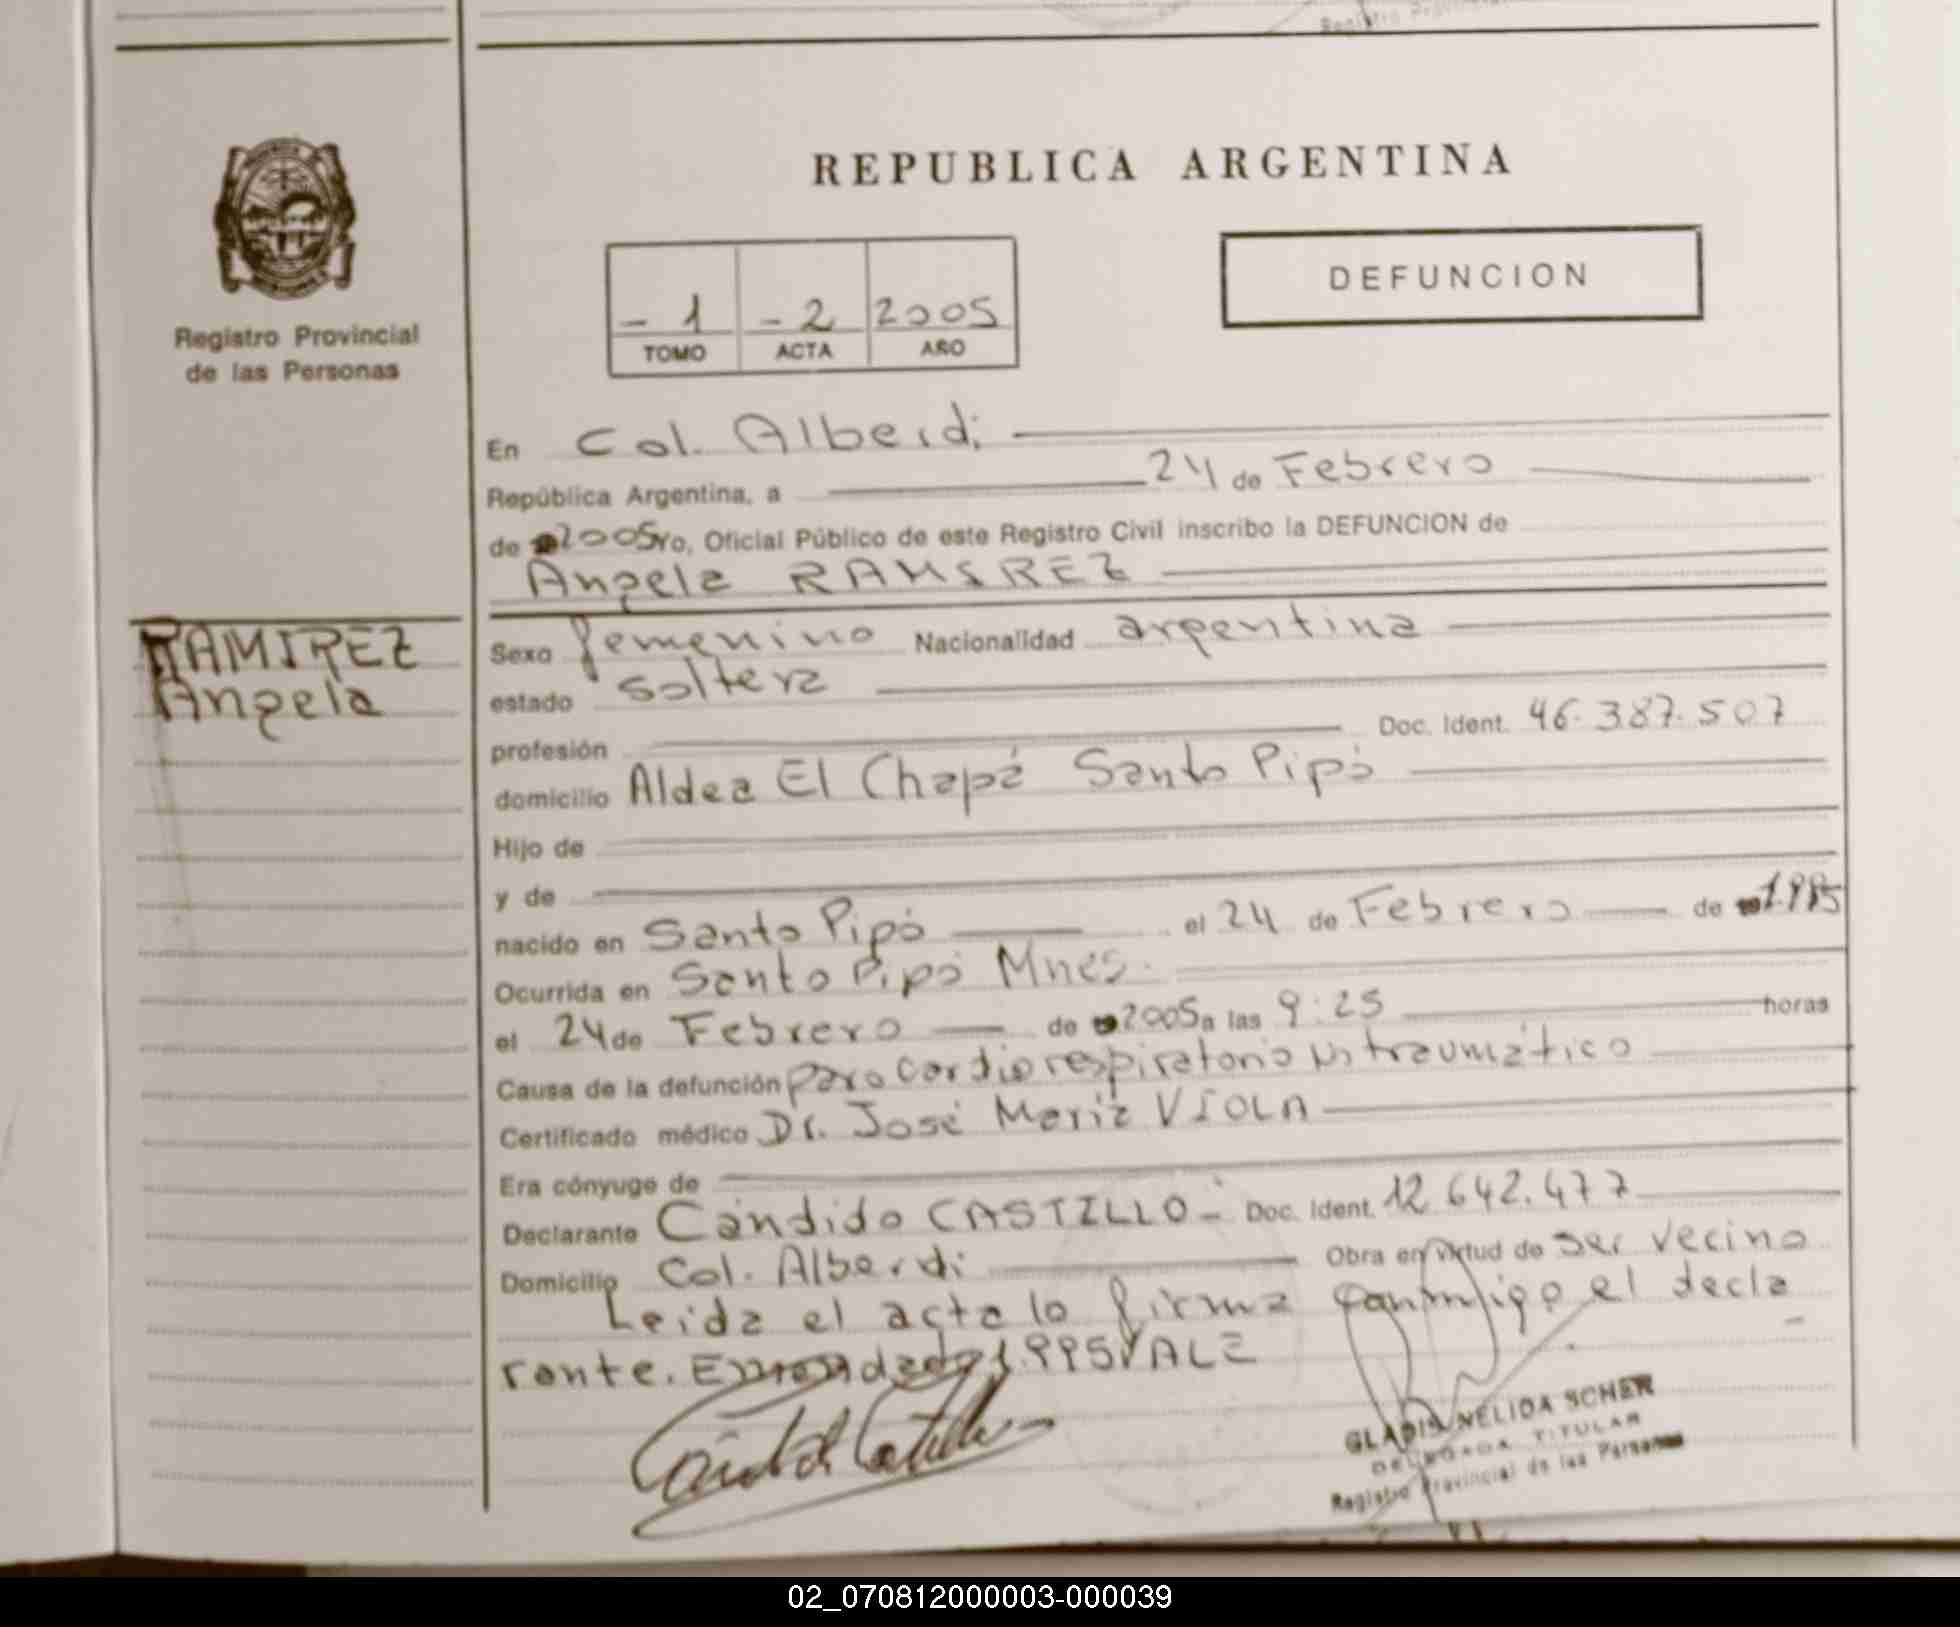 REPUBLICA ARGENTINA
DEFUNCION
Registro Provincial
de las Personas
- 1 - 2 2005
TOMO ACTA AÑO
En Col. Alberdi
República Argentina, a 24 de Febrero
de 2005 Yo, Oficial Público de este Registro Civil inscribo la DEFUNCION de
Angela RAMIREZ
RAMIREZ
Angela
Sexo femenino Nacionalidad argentina
estado soltera
profesión Doc. Ident. 46.387.507
domicilio Aldea El Chapá Santo Pipó
Hijo de
y de
nacido en Santo Pipó el 24 de Febrero de 1.995
Ocurrida en Santo Pipó Mnes.
el 24 de Febrero de 2005 a las 9:25 horas
Causa de la defunción paro cardio respiratorio no traumático
Certificado médico Dr. José María VIOLA
Era cónyuge de
Declarante Cándido CASTILLO - Doc. Ident. 12.642.477
Domicilio Col. Alberdi Obra en virtud de ser vecino
Leida el acta lo firma conmigo el decla
rante. Enmendado 1.995 VALE
GLADIS NELIDA SCHER
DELEGADA TITULAR
Registro Provincial de las Personas
02_070812000003-000039